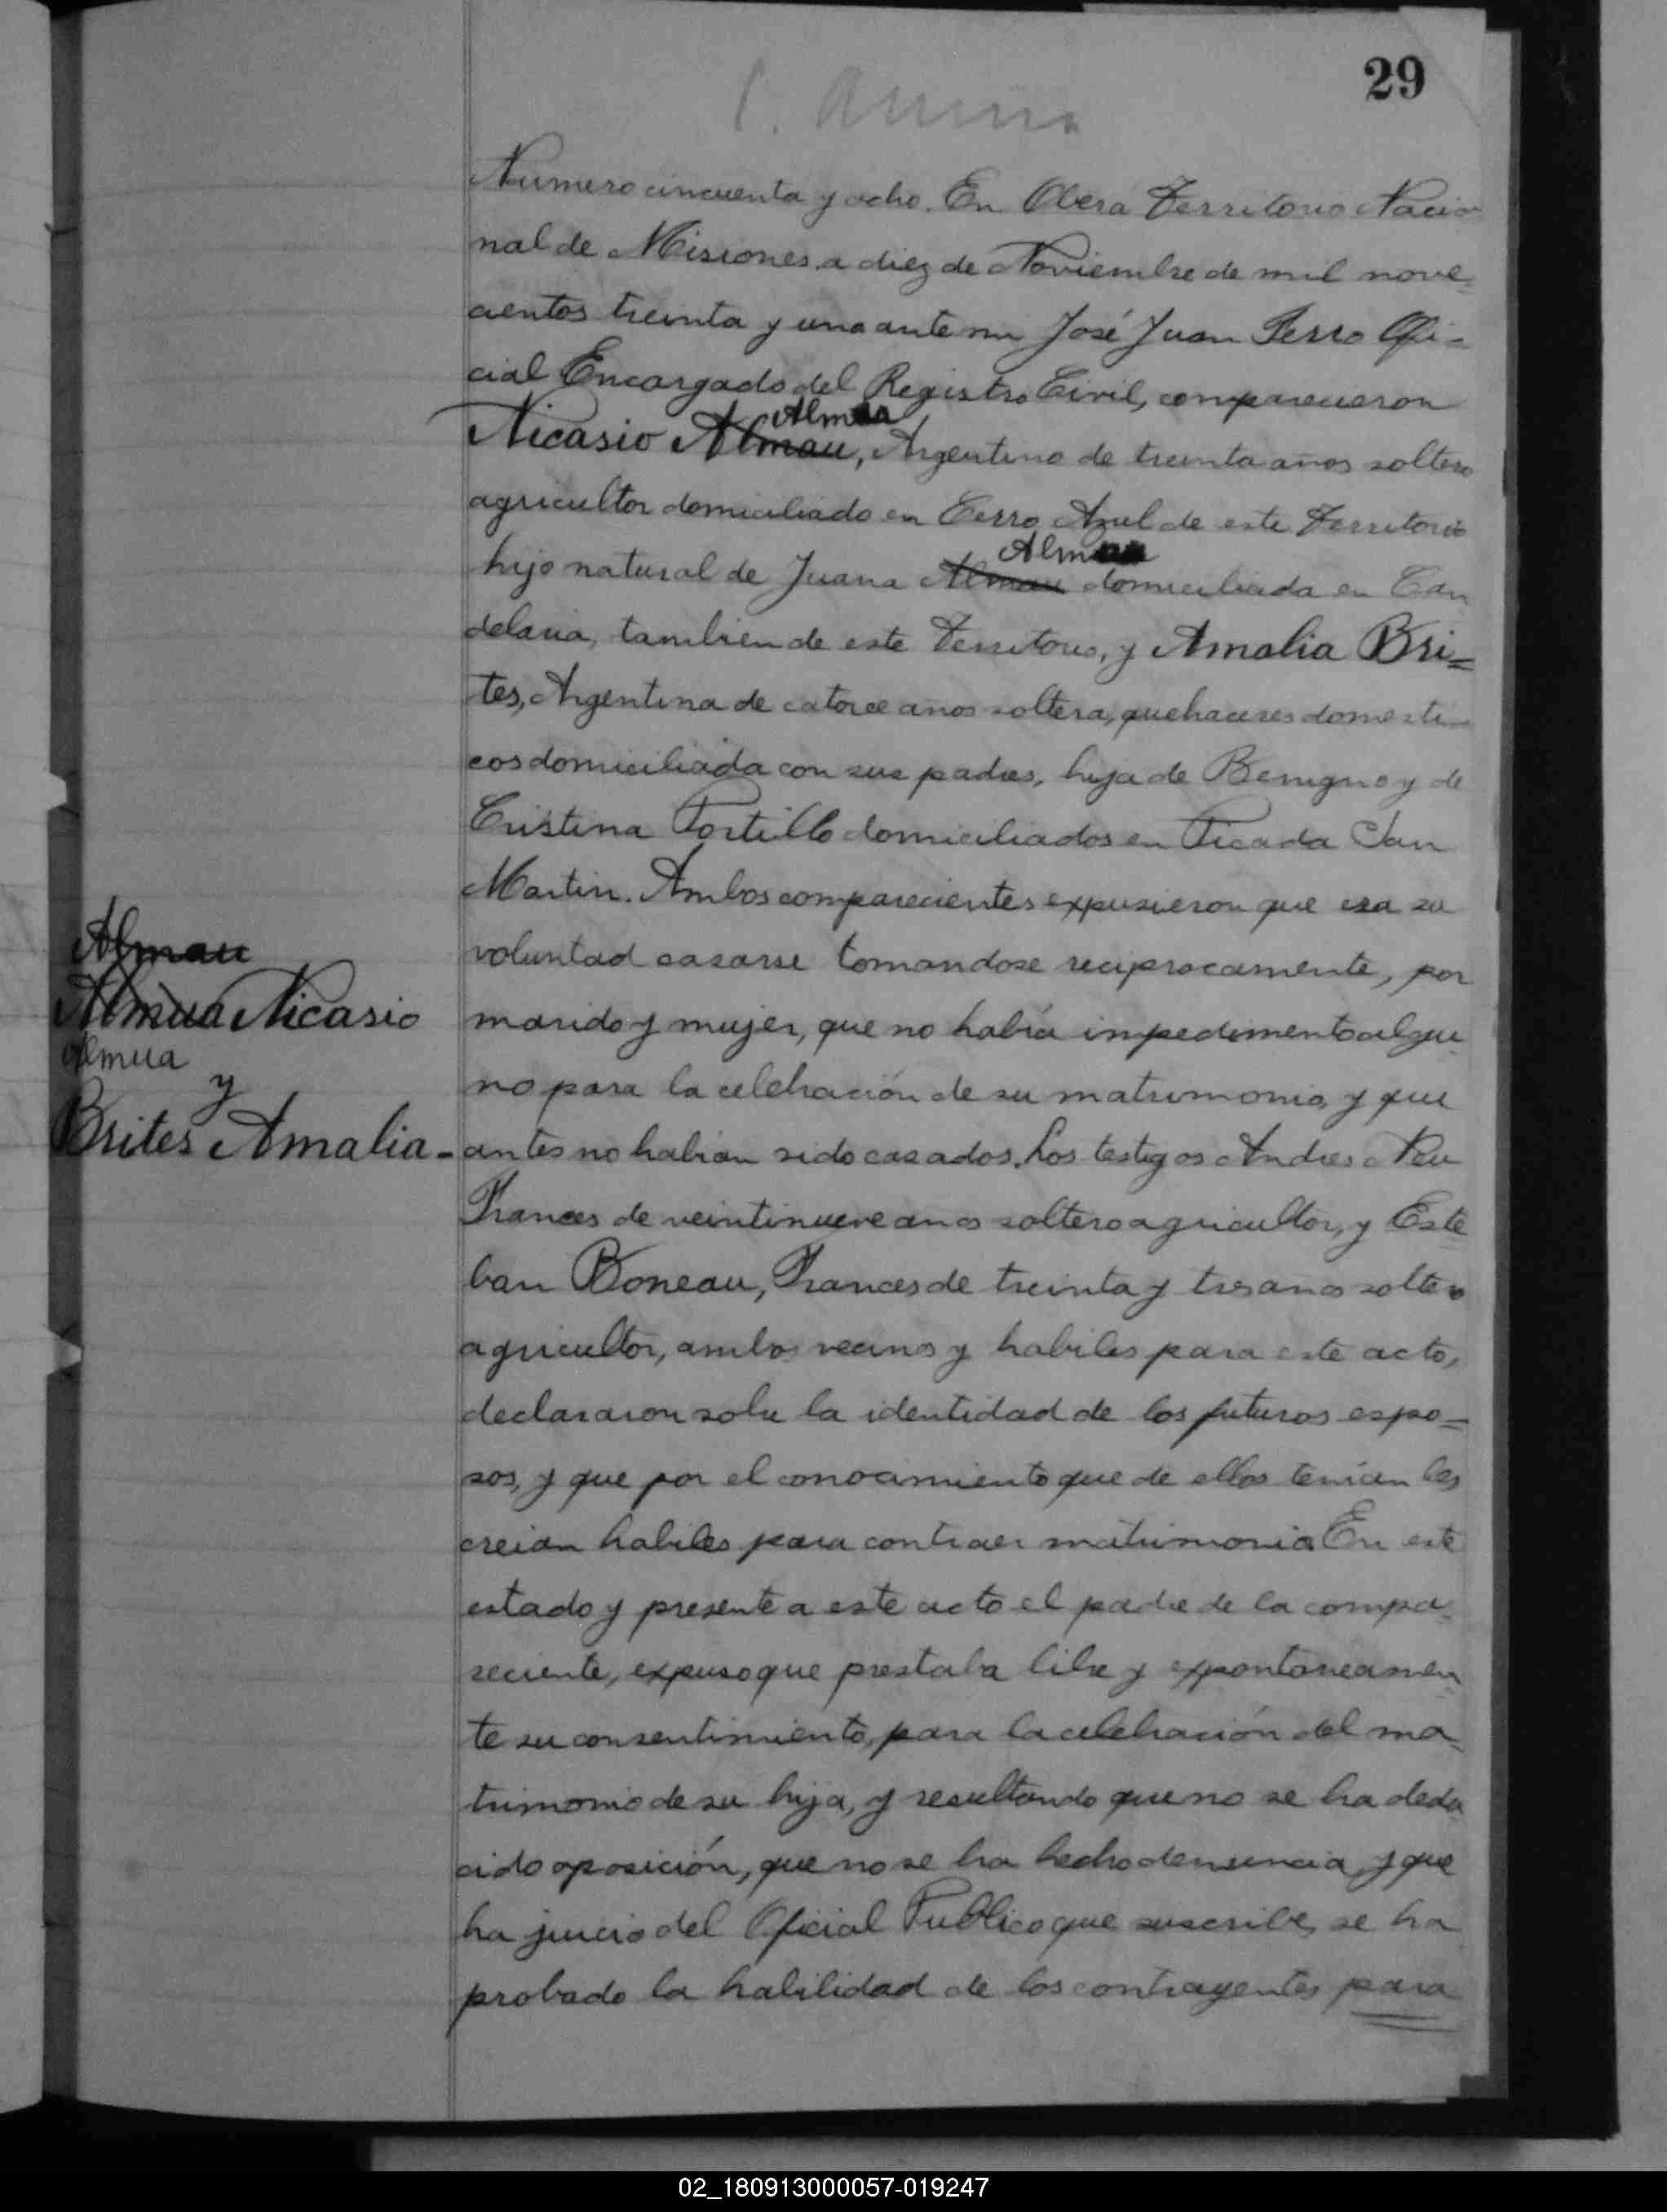 29
Numero cincuenta y ocho. En Oberá Territorio Nacio
nal de Misiones a diez de Noviembre de mil nove=
cientos treinta y uno ante mi José Juan Ferro Ofi-
cial Encargado del Registro Civil, comparecieron
Almua
Nicasio Almau, Argentino de treinta años soltero
agricultor domiciliado en Cerro Azul de este Territorio
Almua
hijo natural de Juana Almau domiciliada en Can
delaria, tambien de este Territorio, y Amalia Bri=
tes, Argentina de catorce años soltera, quehaceres domesti-
cos domiciliada con sus padres, hija de Benigno y de
Cristina Portillo domiciliados en Picada San
Martin. Ambos comparecientes expusieron que era su
voluntad casarse tomandose reciprocamente, por
marido y mujer, que no había impedimento algu
no para la celebración de su matrimonio, y que
antes no habian sido casados. Los testigos Andres
Frances de veintinueve años soltero agricultor, y Este
ban Boneau, Frances de treinta y tres años soltero
agricultor, ambos vecinos y habiles para este acto,
declararon sobre la identidad de los futuros espo=
sos, y que por el conocimiento que de ellos tenían los
creian habiles para contraer matrimonio En este
estado y presente a este acto el padre de la compa=
reciente, expuso que prestaba libre y expontaneamen
te su consentimiento, para la celebración del ma=
trimonio de su hija, y resultando que no se ha dedu
cido oposición, que no se ha hecho denuncia, y que
ha juicio del Oficial Publico que suscribe, se ha
probado la habilidad de los contrayentes para
Almau
Almua Nicasio
Almua
y
Brites Amalia-
02_180913000057-019247